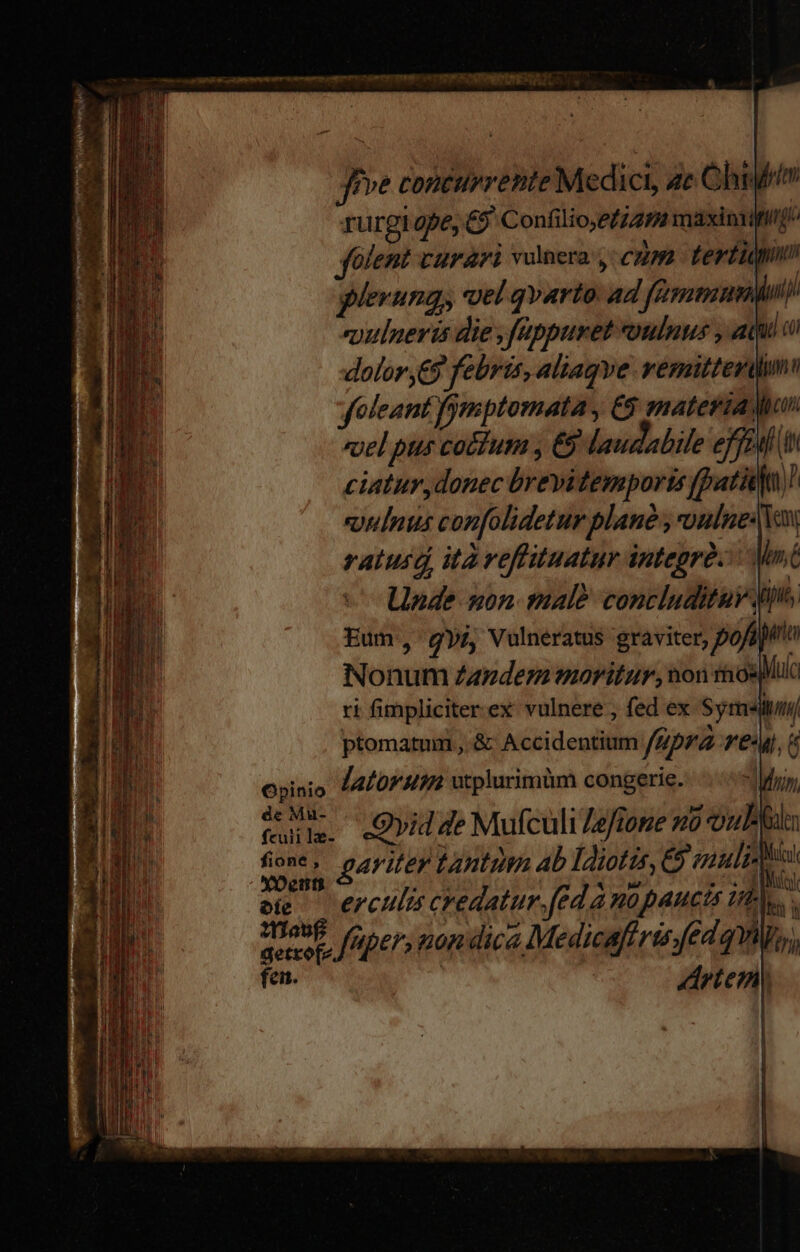 ſive concurrente Medici, ac Chi-
rurgi ope, & Conſilio, etiam maximi
ſolent curari vulnera, cùm tertio
plerunq; vel qvarto ad ſummum
vulneris die, ſuppuret vulnus, ac
dolor, & febris, aliaqve remittere
ſoleant ſymptomata, & materia
vel pus coctum, & laudabile effi-
ciatur, donec brevi temporis ſpatio
vulnus conſolidetur planè, vulne-
ratusq́, ità reſtituatur integrè.
Unde non malè concluditur
Eum, qvi, Vulneratus graviter, poſt
Nonum tandem moritur, non mo-
ri ſimpliciter ex vulnere, ſed ex Sym-
ptomatum, & Accidentium ſuprà re-
latorum utplurimùm congerie.
Opinio
de Mu-
ſculi læ-
ſione,
Wenn
die
Mauß
getrof-
fen.
Qvid de Muſculi læſione nõ vul-
gariter tantùm ab Idiotis, & muli-
erculis credatur, ſed à nõ paucis in-
ſuper, non dicã Medicaſtris, ſed qvi
Artem